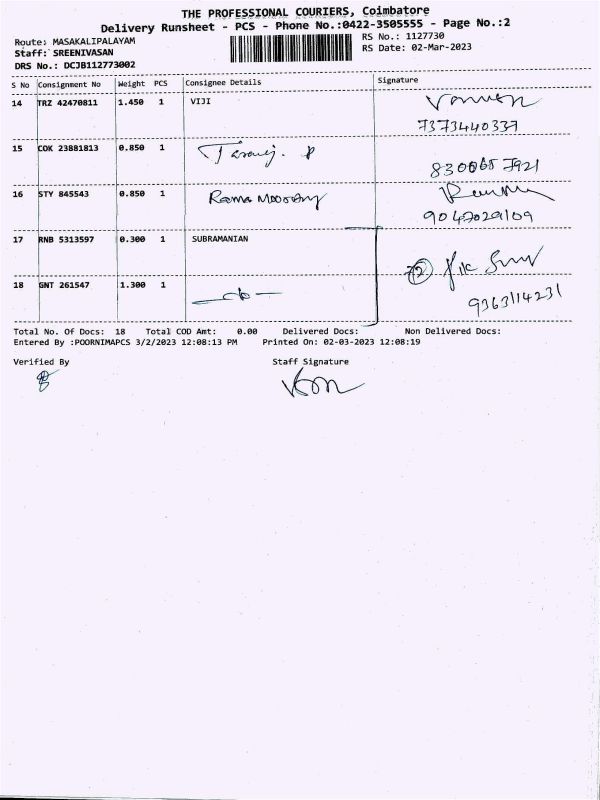 THE PROFESSIONAL COURIERS, Coimbatore
Delivery Runsheet - PCS - Phone No.:0422-3505555 - Page No.:2
Route: MASAKALIPALAYAM
RS No.: 1127730
Staff: SREENIVASAN
RS Date: 02-Mar-2023
DRS No.: DCJB112773002
S No Consignment No Weight PCS Consignee Details Signature
14 TRZ 42470811 1.450 1 VIJI
7373440337
15 COK 23881813 0.850 1
7921
16 STY 845543 0.850 1 Rama Moorthy
9047029109
17 RNB 5313597 0.300 1 SUBRAMANIAN
18 GNT 261547 1.300 1
9363114231
Total No. Of Docs: 18 Total COD Amt: 0.00 Delivered Docs: Non Delivered Docs:
Entered By :POORNIMAPCS 3/2/2023 12:08:13 PM Printed On: 02-03-2023 12:08:19
Verified By Staff Signature